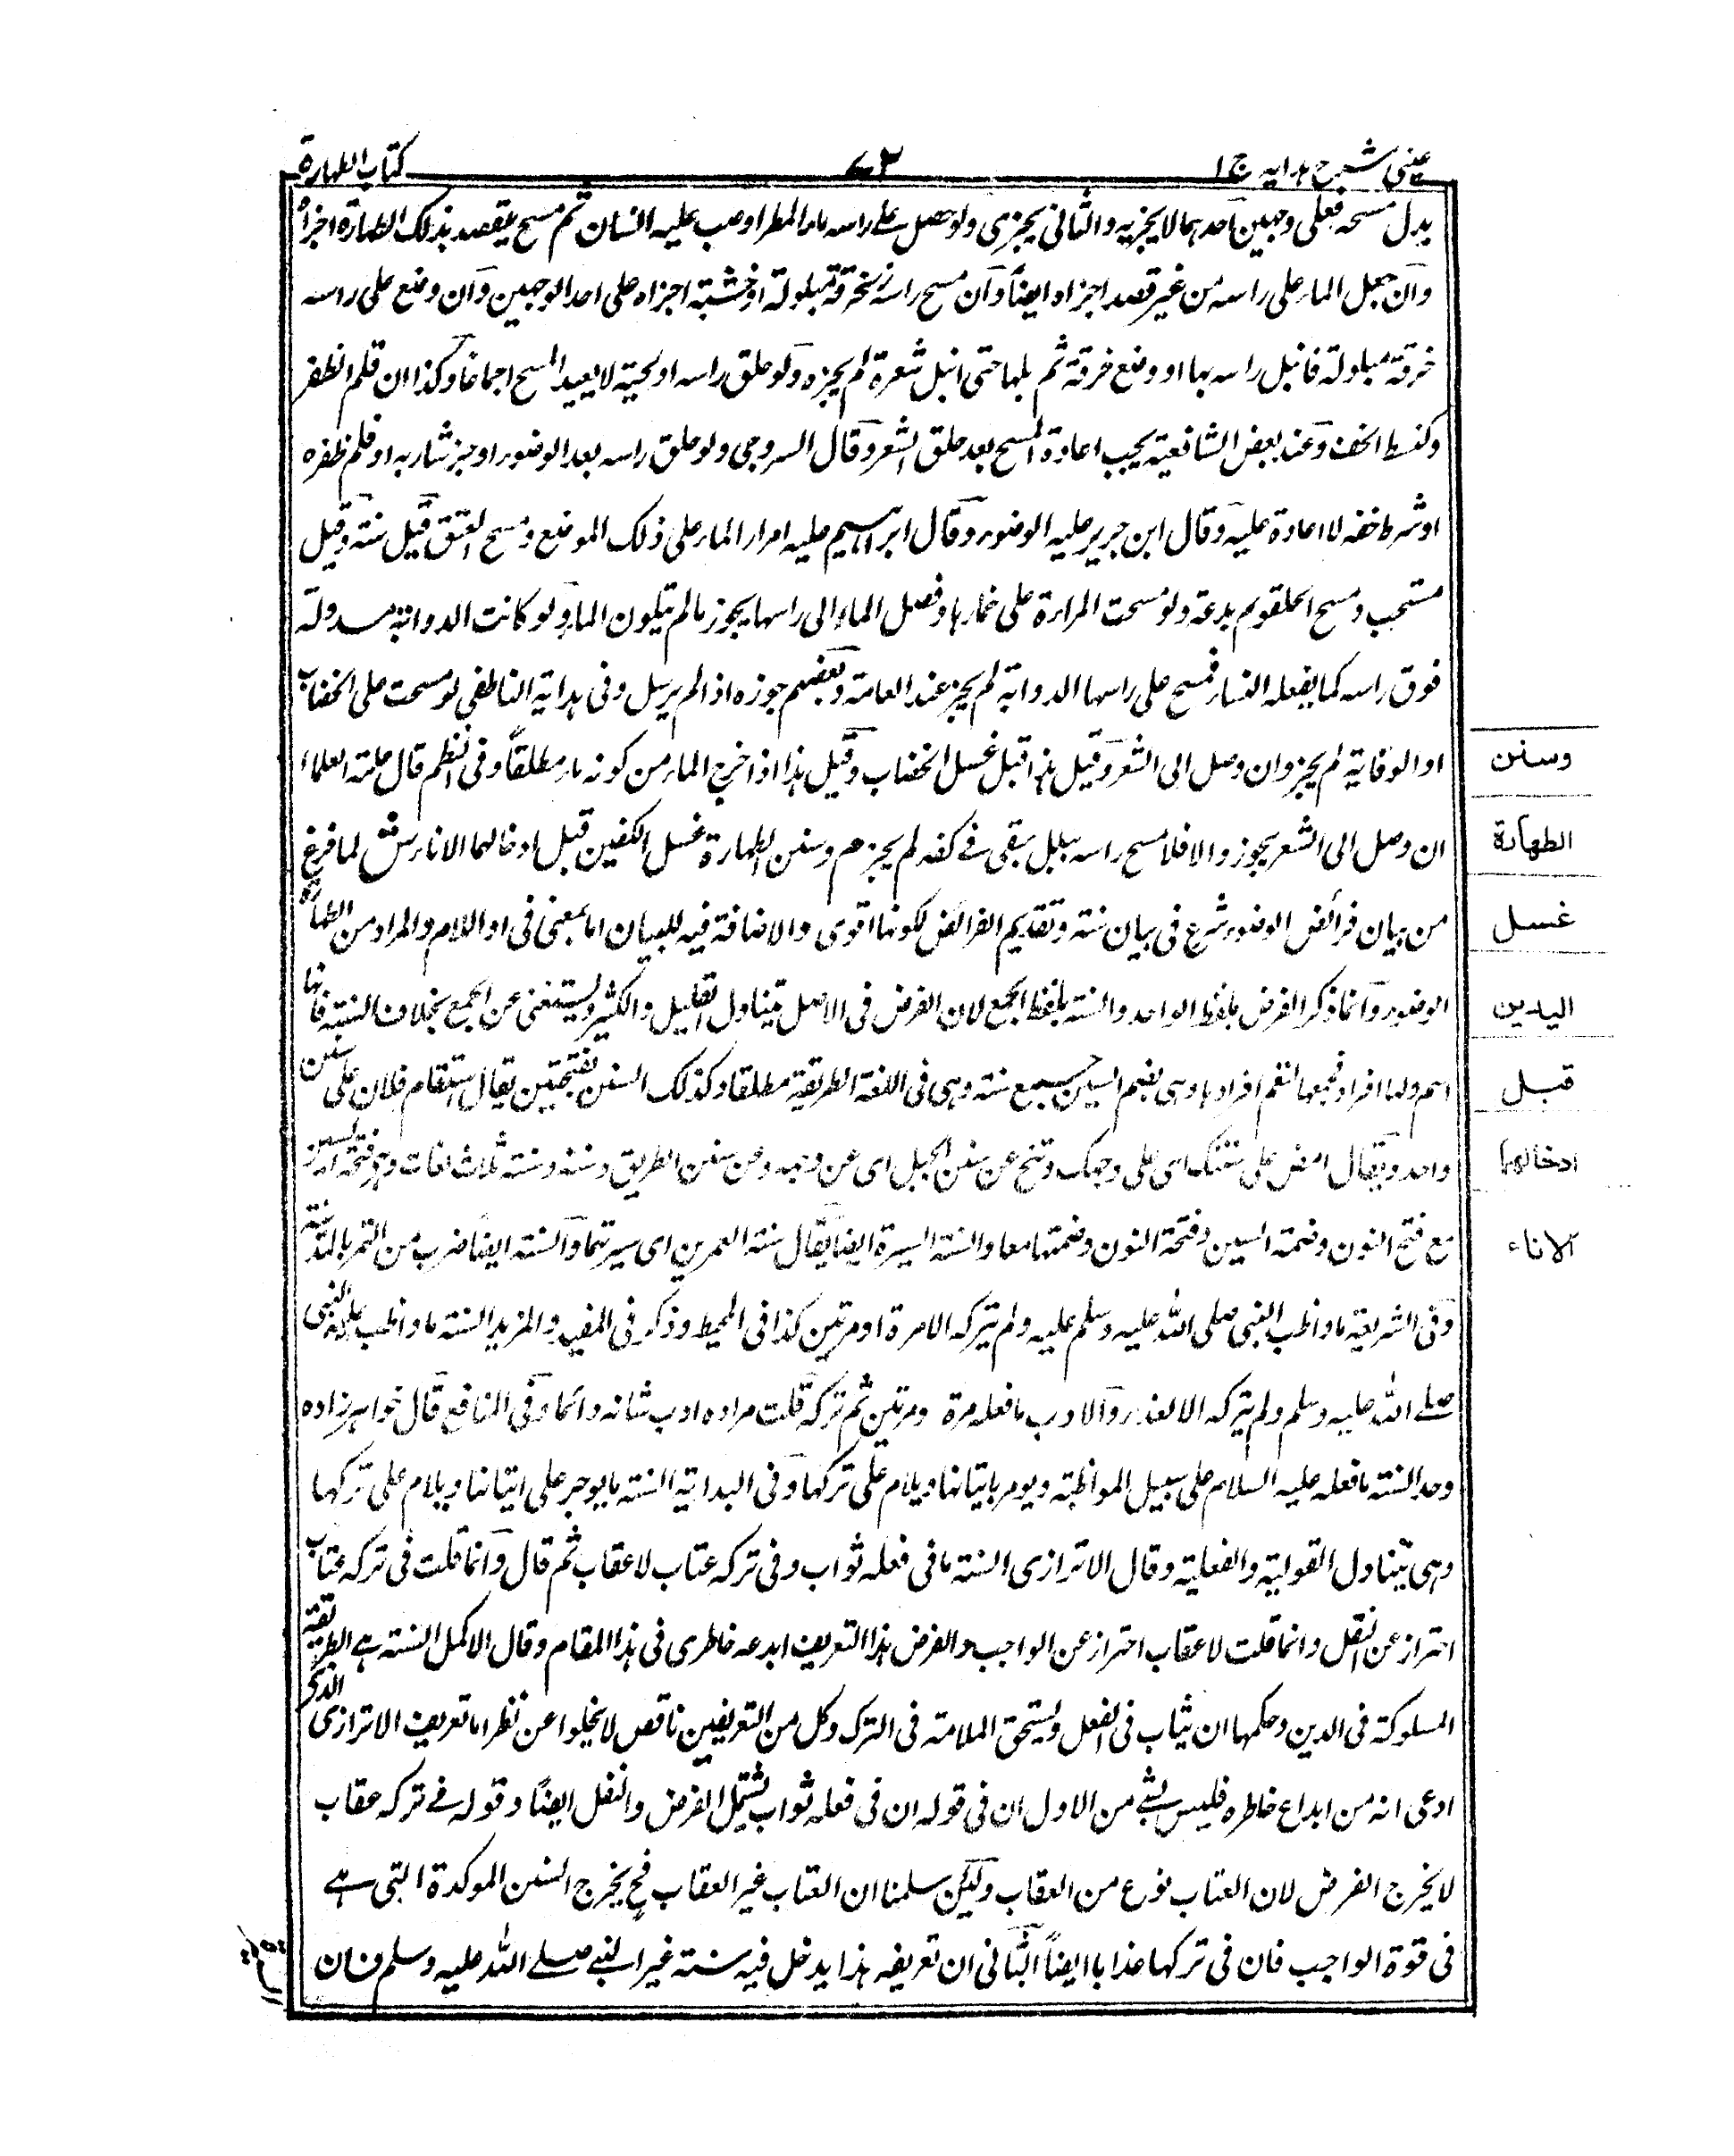 عینی شرح ہدایہ ج ۱
۷۲
کتاب الطہارۃ
بدل مسحہ فعلی وجہین احدہما لا یجزیہ والثانی یجزی ولو حصل علے راسہ ماء المطر او صب علیہ انسان ثم مسح یقصد بذلک الطہارۃ اجزأ
وان جعل الماء علی راسہ من غیر قصد اجزاہ ایضاً وان مسح راسہ بخرقۃ مبلولۃ او خشبۃ اجزاہ علی احد الوجہین وان وضع علی راسہ
خرقۃ مبلولۃ فانبل راسہ بہا او وضع خرقۃ ثم بلہا حتی انبل شعرہ لم یجزہ ولو حلق راسہ او لحیتہ لا یعید المسح اجماعاً وکذا ان قلم الظفر
وکشط الخف وعند بعض الشافعیۃ یجب اعادۃ المسح بعد حلق الشعر وقال السروجی ولو حلق راسہ بعد الوضوء او جز شاربہ او قلم ظفرہ
او شرط خفہ لا اعادۃ علیہ وقال ابن جریر علیہ الوضوء وقال ابراہیم علیہ امرار الماء علی ذلک الموضع ومسح العتق قیل سنۃ وقیل
مستحب ومسح الحلقوم بدعۃ ولو مسحت المراءۃ علی خمارہا وفصل الماء الی راسہا یجوز ما لم یتلون الماء ولو کانت الدوابۃ مسدولۃ
فوق راسہ کما یفعلہ النساء فمسح علی راسہا الدوابۃ لم یجز عند العامۃ وبعضہم جوزہ اذا لم یرسل وفی ہدایۃ الناطفی لو مسحت علی الخضاب
او الوقایۃ لم یجز وان وصل الی الشعر وقیل ہذا قبل غسل الخضاب وقیل ہذا اذا خرج الماء من کونہ ماء مطلقاً وفی النظم قال عامۃ العلماء
ان وصل الی الشعر یجوز والا فلا مسح راسہ ببلل بقی فے کفہ لم یجز م وسنن الطہارۃ غسل الکفین قبل ادخالہما الاناء ش لما فرغ
من بیان فرائض الوضوء شرع فی بیان سنتہ وتقدیم الفرائض لکونہا اقوی والاضافۃ فیہ للبیان اما بمعنی فی او اللام والمراد من الطہارۃ
الوضوء وانما ذکر الفرض بلفظ الواحد والسنۃ بلفظ الجمع لان الفرض فی الاصل یتناول القلیل والکثیر ویستغنی عن الجمع بخلاف السنۃ فانہا
اسم ولہا افراد فجمعہا لتعم افرادہا وہی بضم السین جمیع سنۃ وہی فی اللغۃ الطریقۃ مطلقا وکذلک السنن بفتحتین یقال استقام فلان علی سنن
واحد ویقال امض علی سننک ای علی وجہک وتنح عن سنن الجبل ای عن وجہہ وعن سنن الطریق وسننہ وسنتہ ثلاث لغات وہو فتحۃ السین
مع فتح النون وضمۃ السین وفتحۃ النون وضمتہا معا والسنۃ السیرۃ ایضا یقال سنۃ العمرین ای سیرتہما والسنۃ ایضاً ضرب من التمر بالمدینۃ
وفی الشریعۃ ما واظب النبی صلی اللہ علیہ وسلم علیہ ولم یترکہ الا مرۃ او مرتین کذا فی المحیط وذکر فی المفید والمزید السنۃ ما واظب علیہ النبی
صلے اللہ علیہ وسلم ولم یترکہ الا لعذر والادب ما فعلہ مرۃ ومرتین ثم ترکہ قلت مرادہ ادب شانہ دائما وفی المنافع قال خواہر زادہ
وحد السنۃ ما فعلہ علیہ السلام علی سبیل المواظبۃ ویومر باتیانہا ویلام علی ترکہا وفی البدایۃ السنۃ ما یوجر علی اتیانہا ویلام علی ترکہا
وہی یتناول القولیۃ والفعلیۃ وقال الاترازی السنۃ ما فی فعلہ ثواب وفی ترکہ عتاب لا عقاب ثم قال وانما قلت فی ترکہ عتاب
احتراز عن النفل وانما قلت لا عقاب احتراز عن الواجب والفرض ہذا التعریف ابدعہ خاطری فی ہذا المقام وقال الاکمل السنۃ ہے الطریقۃ
المسلوکۃ فی الدین وحکمہا ان یثاب فی الفعل ویستحق الملامۃ فی الترک وکل من التعریفین ناقص لا یخلوا عن نظر اما تعریف الاترازی الذی
ادعی انہ من ابداع خاطرہ فلیس بشے من الاول ان فی قولہ ان فی فعلہ ثواب یشتمل الفرض والنفل ایضاً وقولہ فے ترکہ عقاب
لا یخرج الفرض لان العتاب نوع من العقاب ولکن سلمنا ان العتاب غیر العقاب فح یخرج السنن الموکدۃ التی ہے
فی قوۃ الواجب فان فی ترکہا عذابا ایضاً الثانی ان تعریفہ ہذا یدخل فیہ سنۃ غیر النبے صلے اللہ علیہ وسلم فان
وسنن
الطہارۃ
غسل
الیدین
قبل
ادخالہما
الاناء